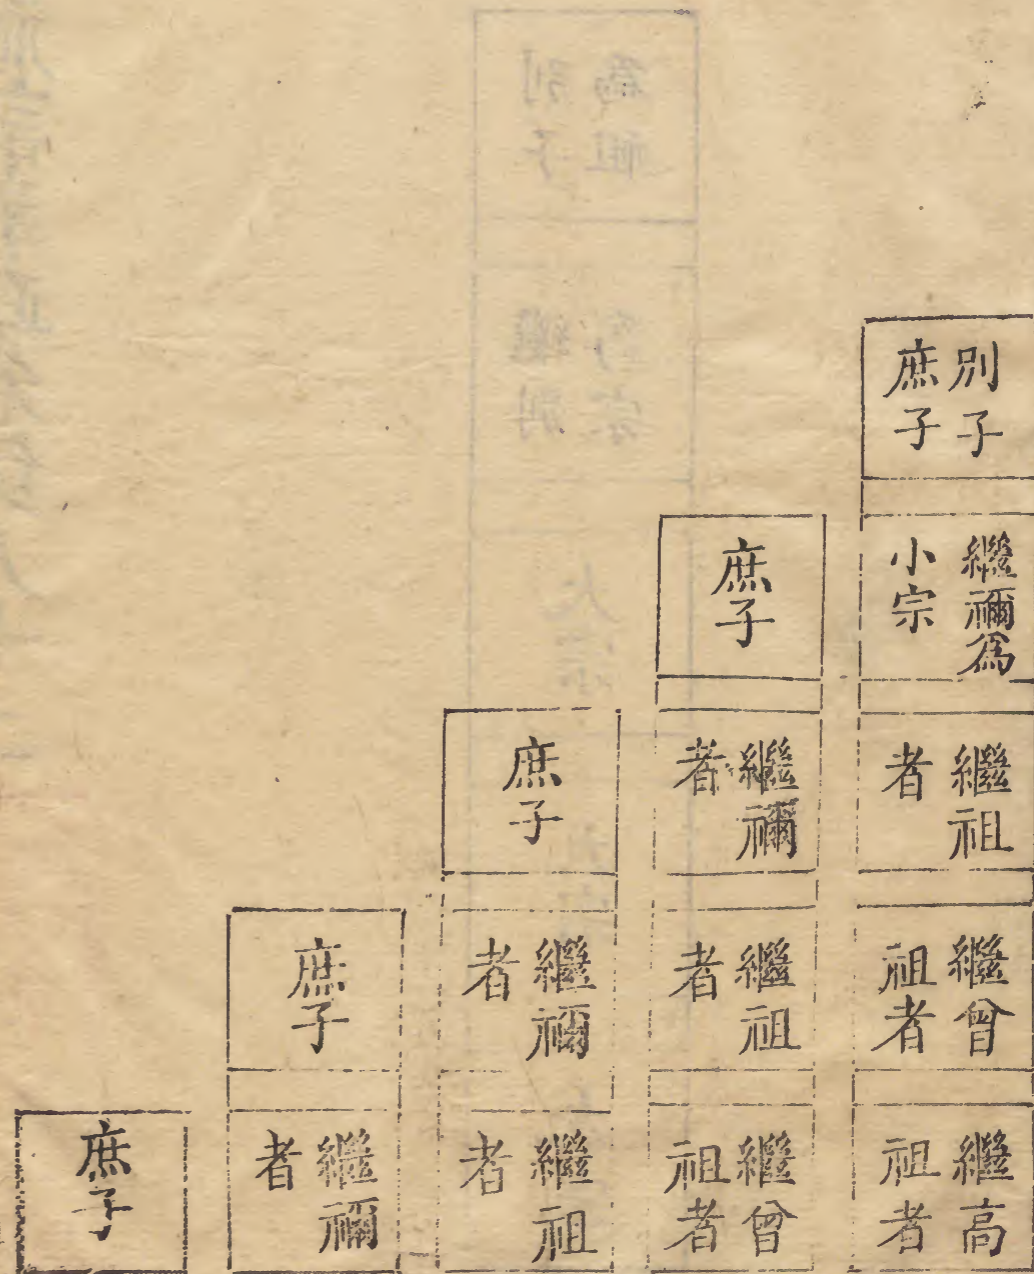 別子
庶子
繼禰為
小宗
繼祖
者
繼曾
祖者
繼高
祖者
庶子
繼禰
者
繼祖
者
繼曾
祖者
庶子
繼禰
者
繼祖
者
庶子
繼禰
者
庶子